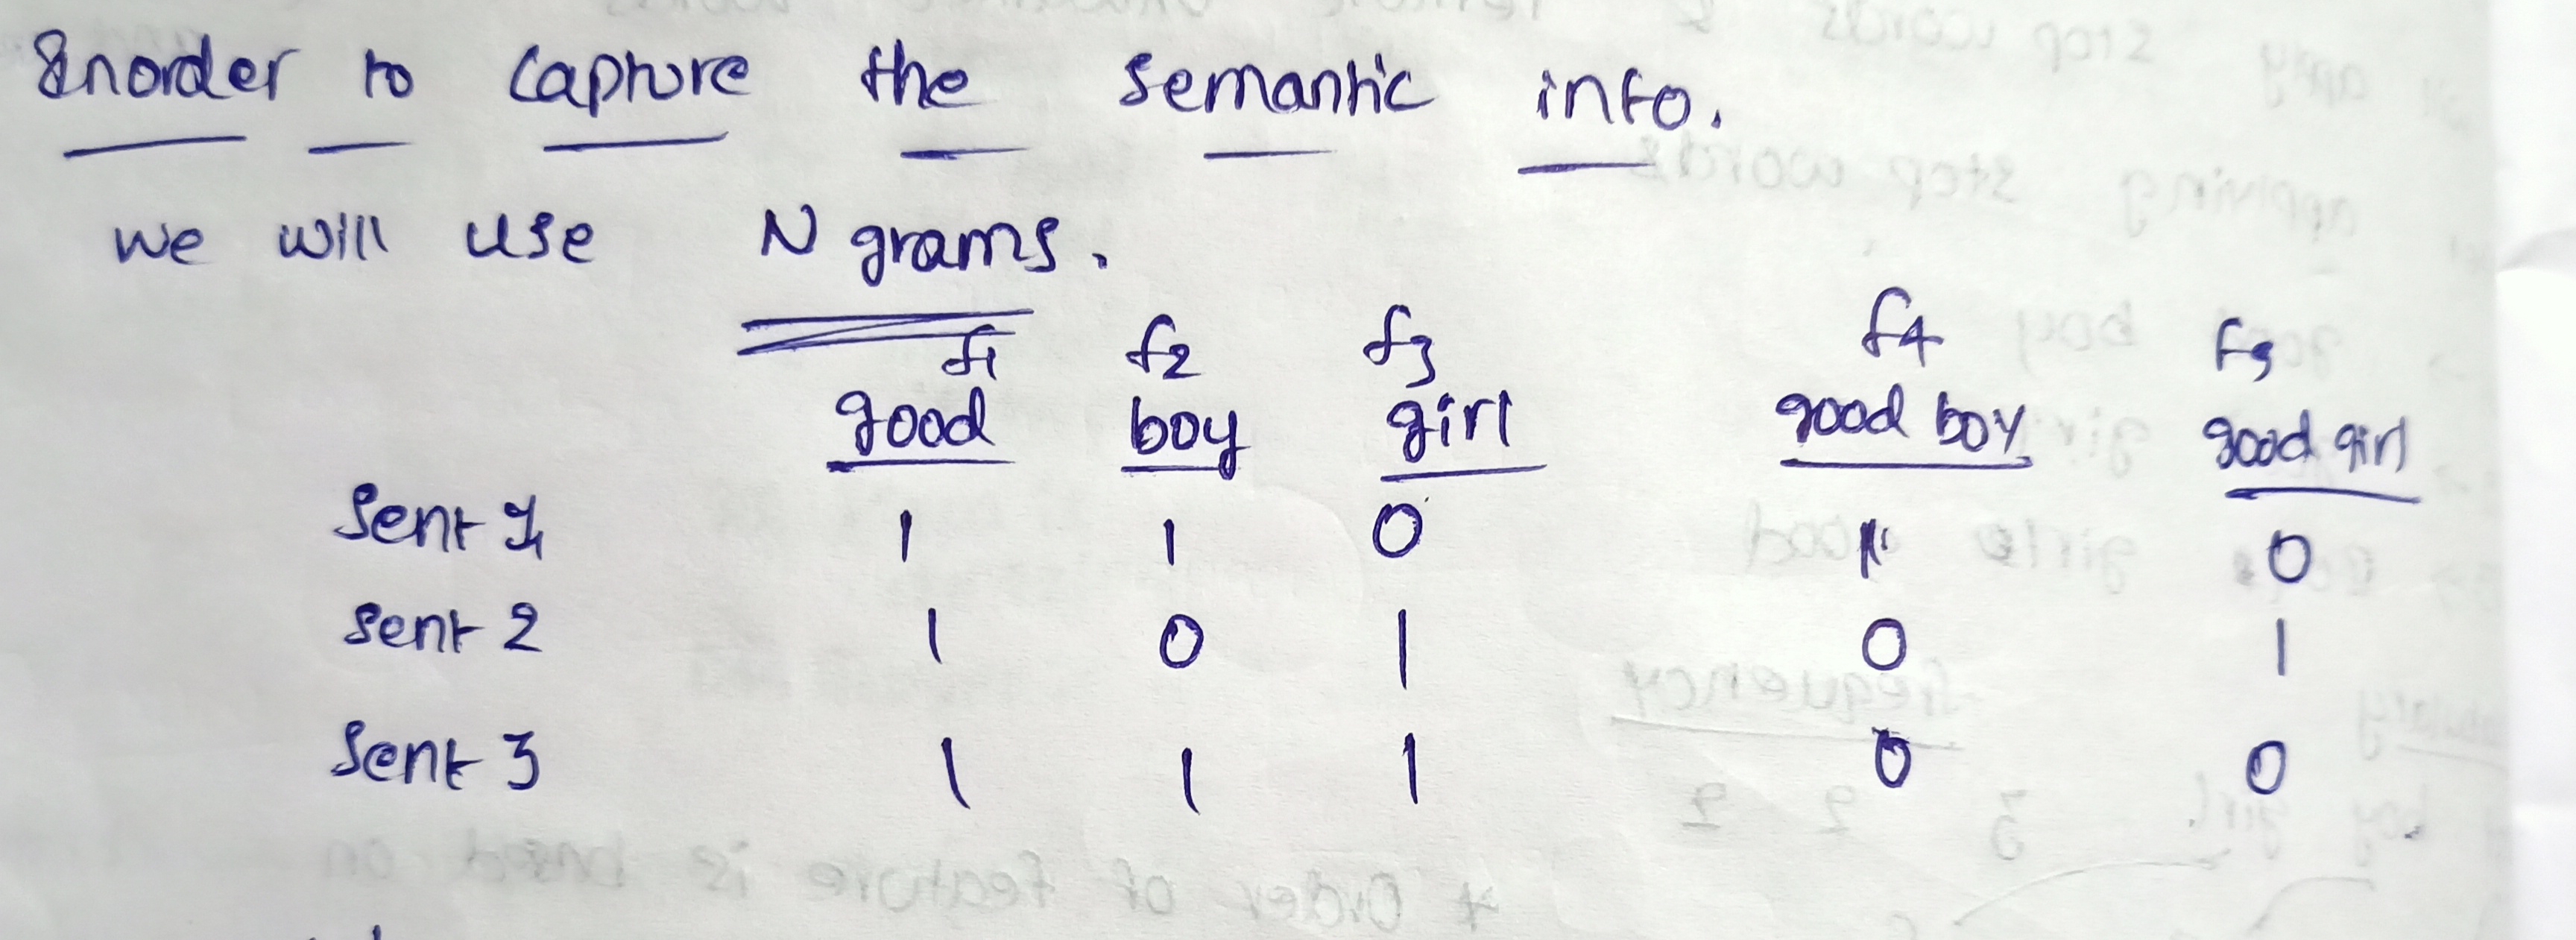 Inorder to capture the semantic info.
we will use N grams.
f1 f2 f3 f4 f5
good boy girl good boy good girl
Sent 1 1 1 0 1 0
Sent 2 1 0 1 0 1
Sent 3 1 1 1 0 0